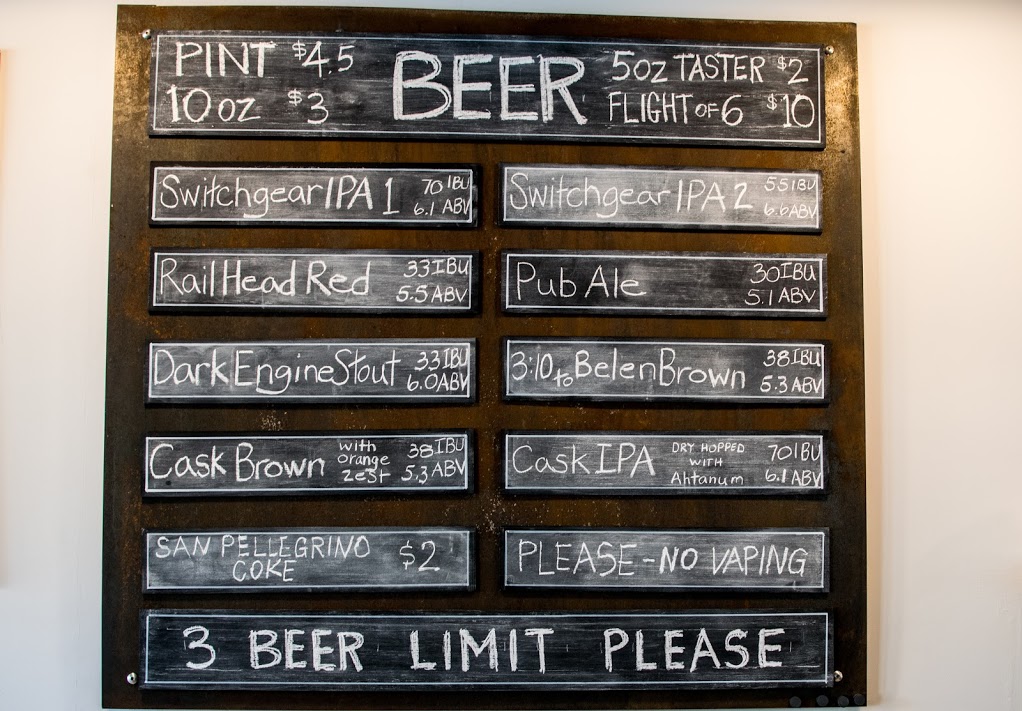 PINT $4.5
10 oz $3
BEER
5oz TASTER $2
FLIGHT OF 6 $10
Switchgear IPA 1 70 IBU
6.1 ABV
Switchgear IPA 2 55 IBU
6.6 ABV
Rail Head Red 33 IBU
5.5 ABV
Pub Ale 30 IBU
5.1 ABV
Dark Engine Stout 33 IBU
6.0 ABV
3:10 to Belen Brown 38 IBU
5.3 ABV
Cask Brown with orange zest 38 IBU
5.3 ABV
Cask IPA DRY HOPPED WITH Ahtanum 70 IBU
6.1 ABV
SAN PELLEGRINO
COKE
$2
PLEASE - NO VAPING
3 BEER LIMIT PLEASE